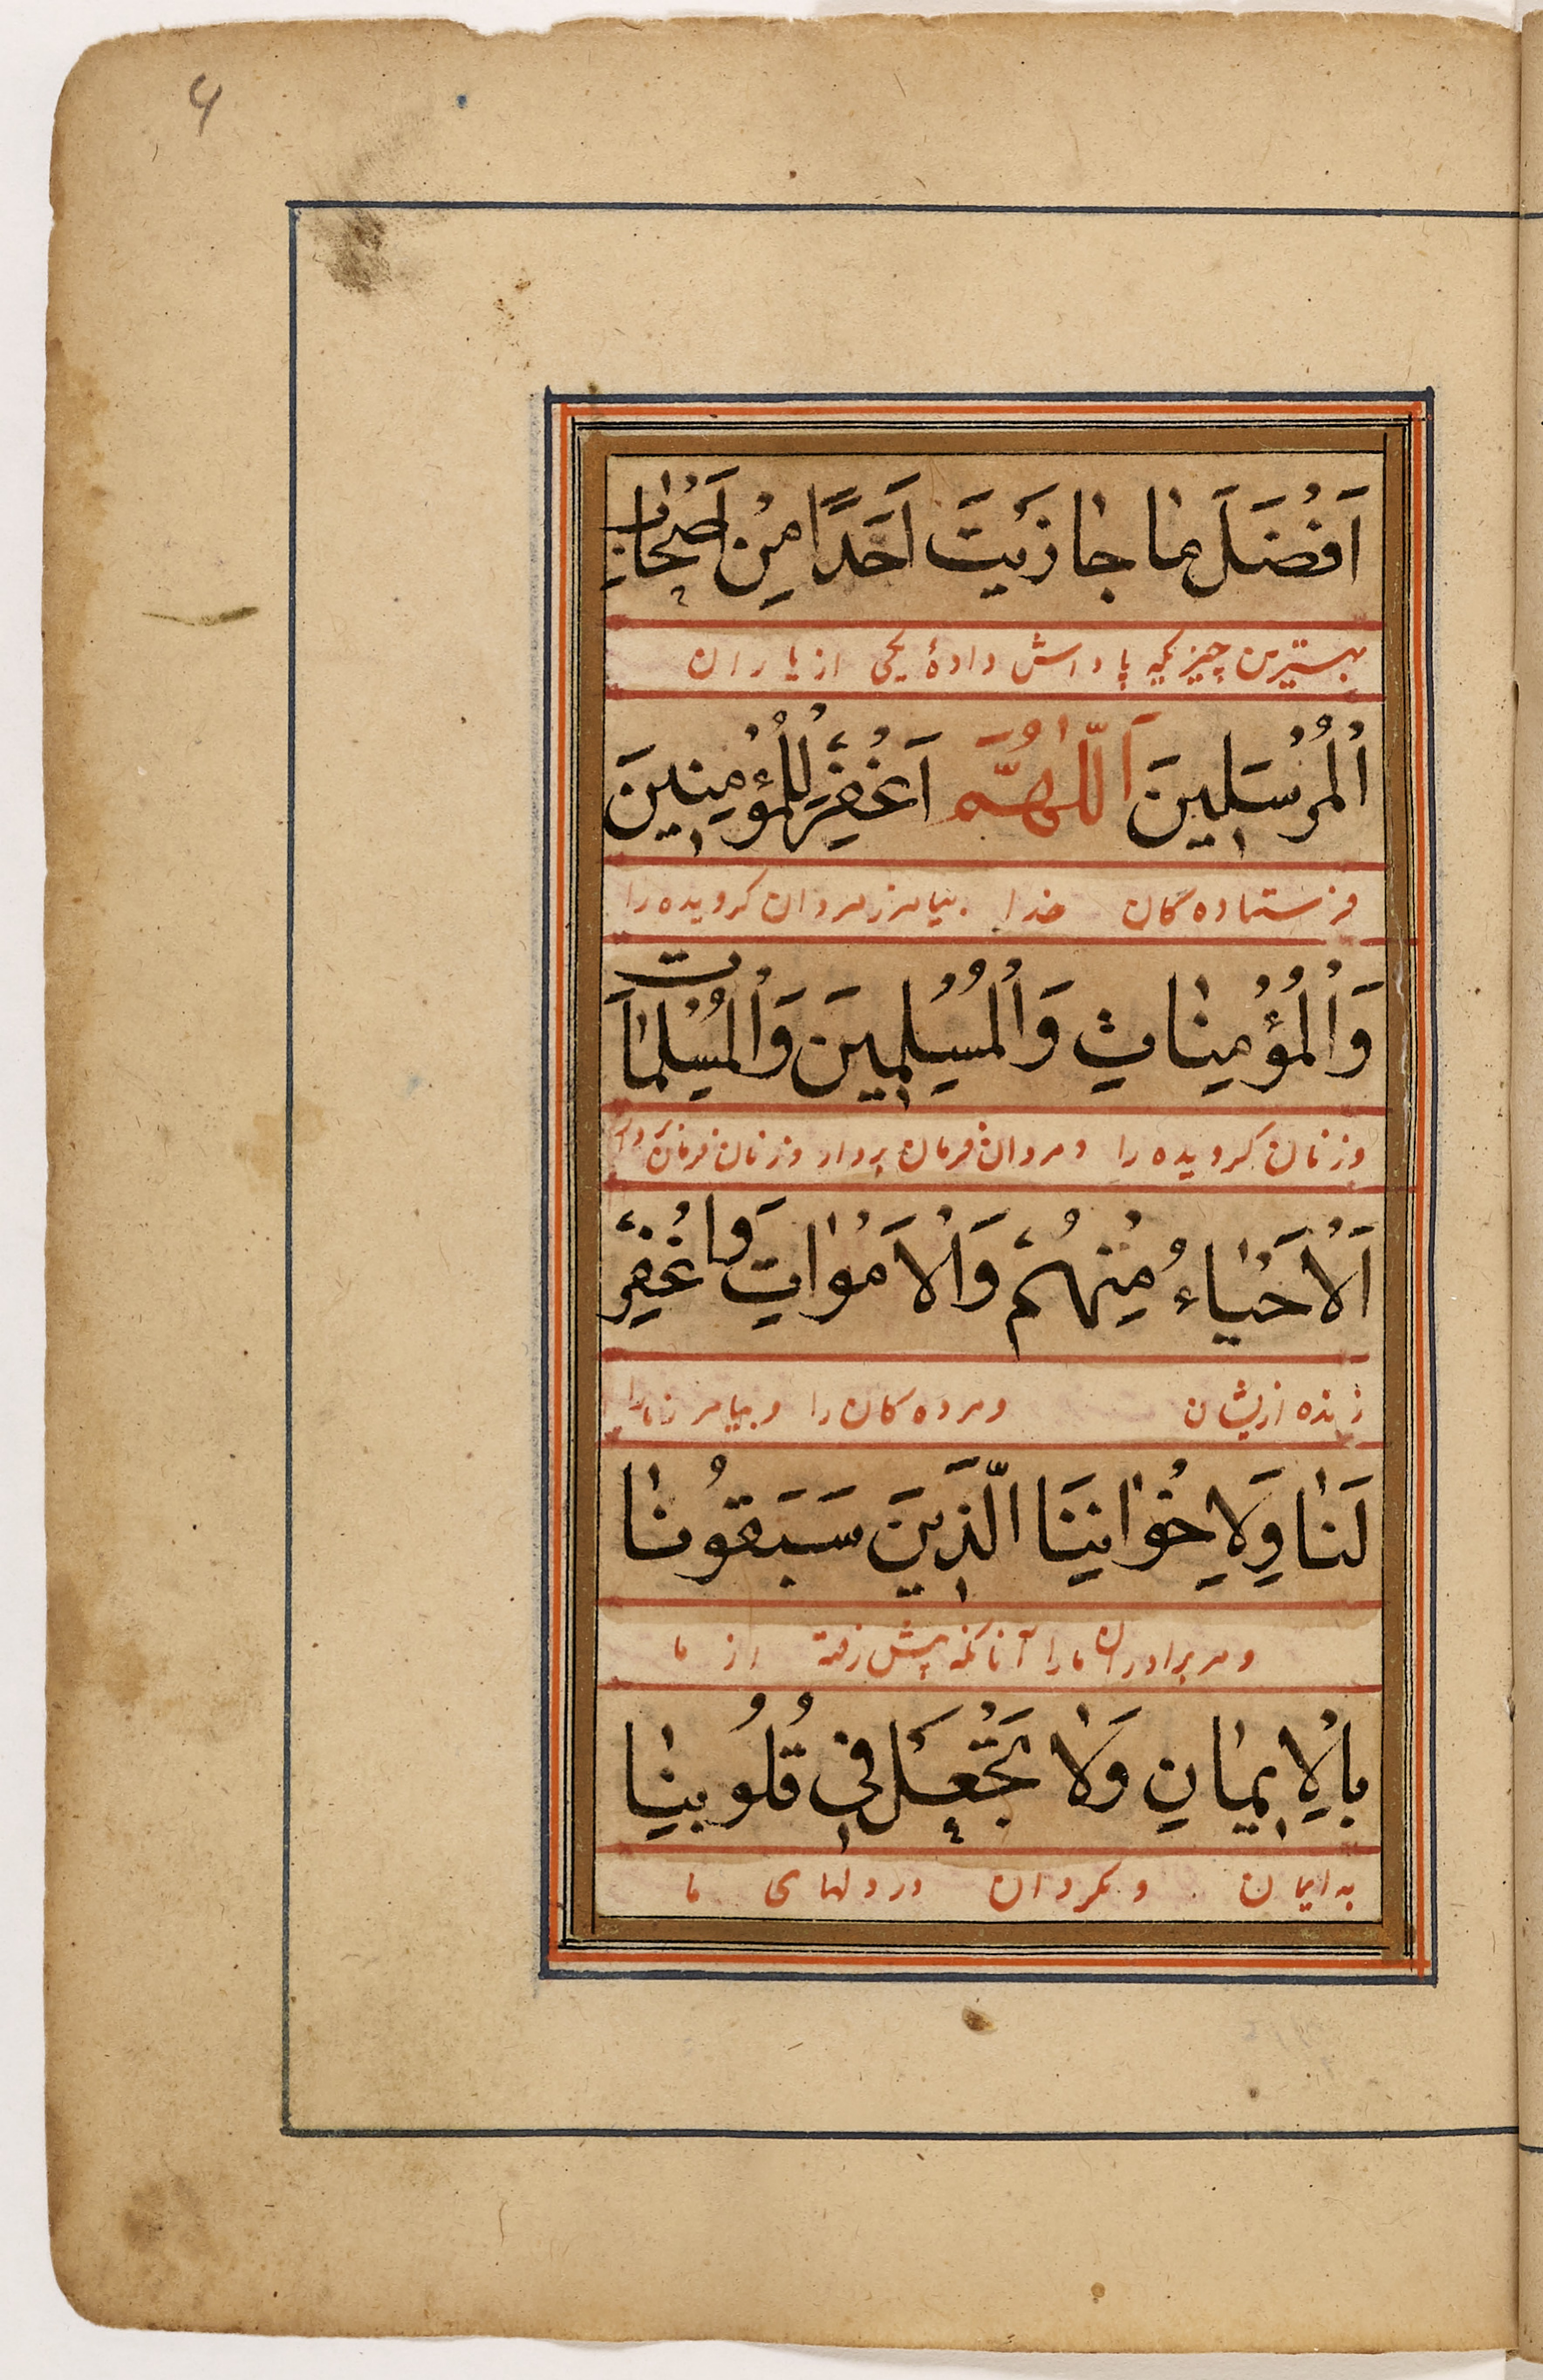 ۶
اَفْضَلَ مٰا جٰازَيْتَ اَحَدًا مِنْ اَصْحٰابِ
بهسترین چیزیکه پاداش دادهٔ یکی از یاران
اْلمُرْسَلِينَ اَللّٰهُمَّ اَغْفِرْ لِلْمُؤْمِنِينَ
فرستاده کان خدا بیامرز مردان کرویده را
وَاْلمُؤْمِنٰاتِ وَاْلمُسْلِمِينَ وَاْلمُسْلِمٰاتِ
وزنان کرویده را ومردان فرمان بردار وزنان فرمان
اَلْاَحْيٰاءِ مِنْهُمْ وَالْاَمْوٰاتِ وَاغْفِرْ
زنده ازیشان ومرده کان را وبیامرز مارا
لَنٰا وَلِاِخْوٰانِنَا الَّذِينَ سَبَقُونٰا
ومر برادران مارا آنانکه پیش رفته از ما
بِالْاِيمٰانِ وَلٰا تَجْعَلْ فِي قُلُوبِنٰا
به ایمان ومکردان در دلهای ما